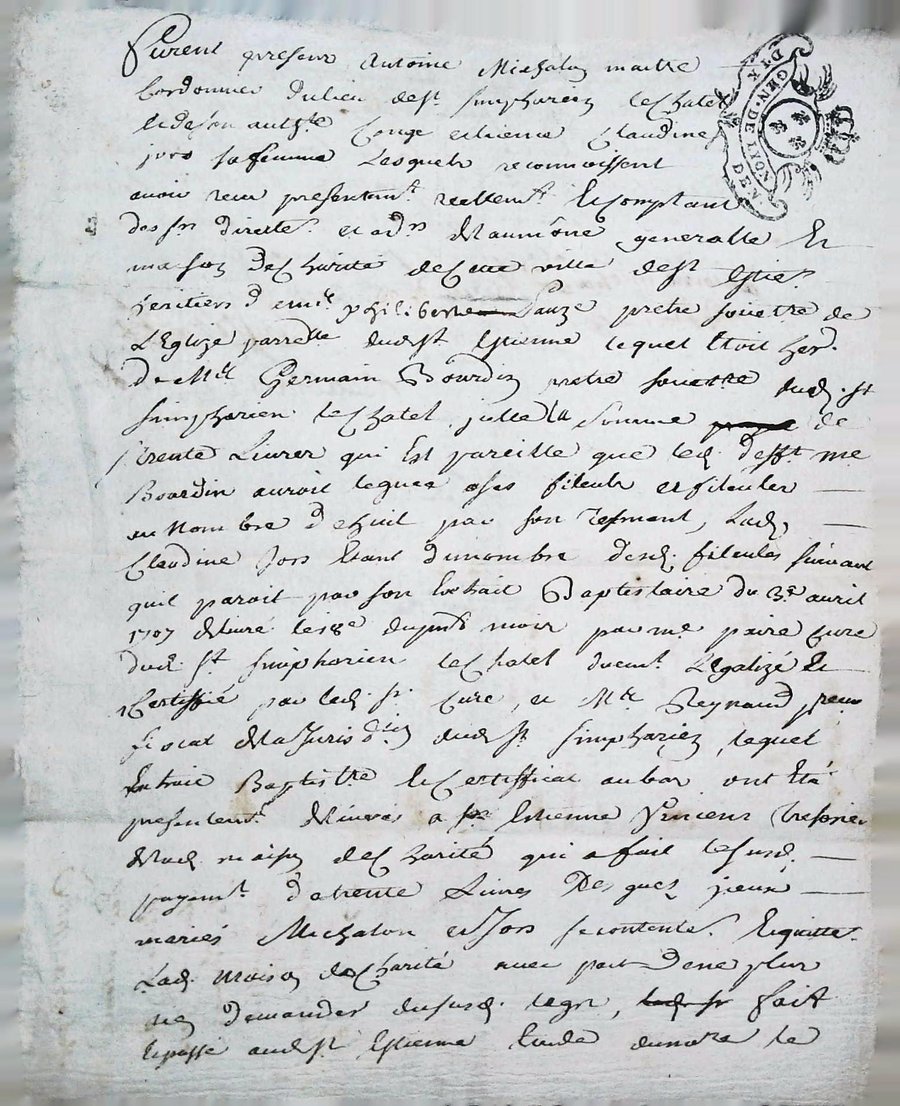 furent presens Antoine Michalon maitre
Cordonnier du lieu de st simphorien le Chatel
et de son autte Conge et licence Claudine
jors sa femme Lesquels reconnoissent
avoir receu presentemt reellemt et Comptant
des srs directrs et adrs de l'aumône generalle Et
maison de Charité de Cette ville de st Estiene
heritiers d' Philibert Pauze pretre societre de
L'Eglize parrelle dudt st Estienne lequel Etoit her.
De Mre Germain Bourdin pretre societre dud. st
simphorien le Chatel, la somme de
trente Livres qui Est pareille que led. defft me
Bourdin auroit leguee a ses filleuls et filleules
au Nombre d'ehuit par son Testment, Lad.
Claudine Jors Etant du nombre desd. filleules suivant
quil paroit par son Extrait Baptistaire du 3e avril
1707 delivré le 18e du pnt mois par me paire Cure
dud. st simphorien le Chatel duemt Legalizé Et
Certiffié par led. sr. Cure, et Mre Reynaud preur
fiscal de la Jurisdion dud. st simphorien, lequel
Extrait Baptistre et Certifficat au bas ont Eté
presentemt delivrés a sr Estienne Vincent tresorier
de lad. maison de Charité qui a fait le susd.
payemt de trente Livres Desquels jceux
mariés Michalon et Jors se contentent. Et quittent
Lad. Maison de Charité avec pact De ne plus
rien demander du susd. legs, fait
Et passé aud. st Estienne Etude du nore le